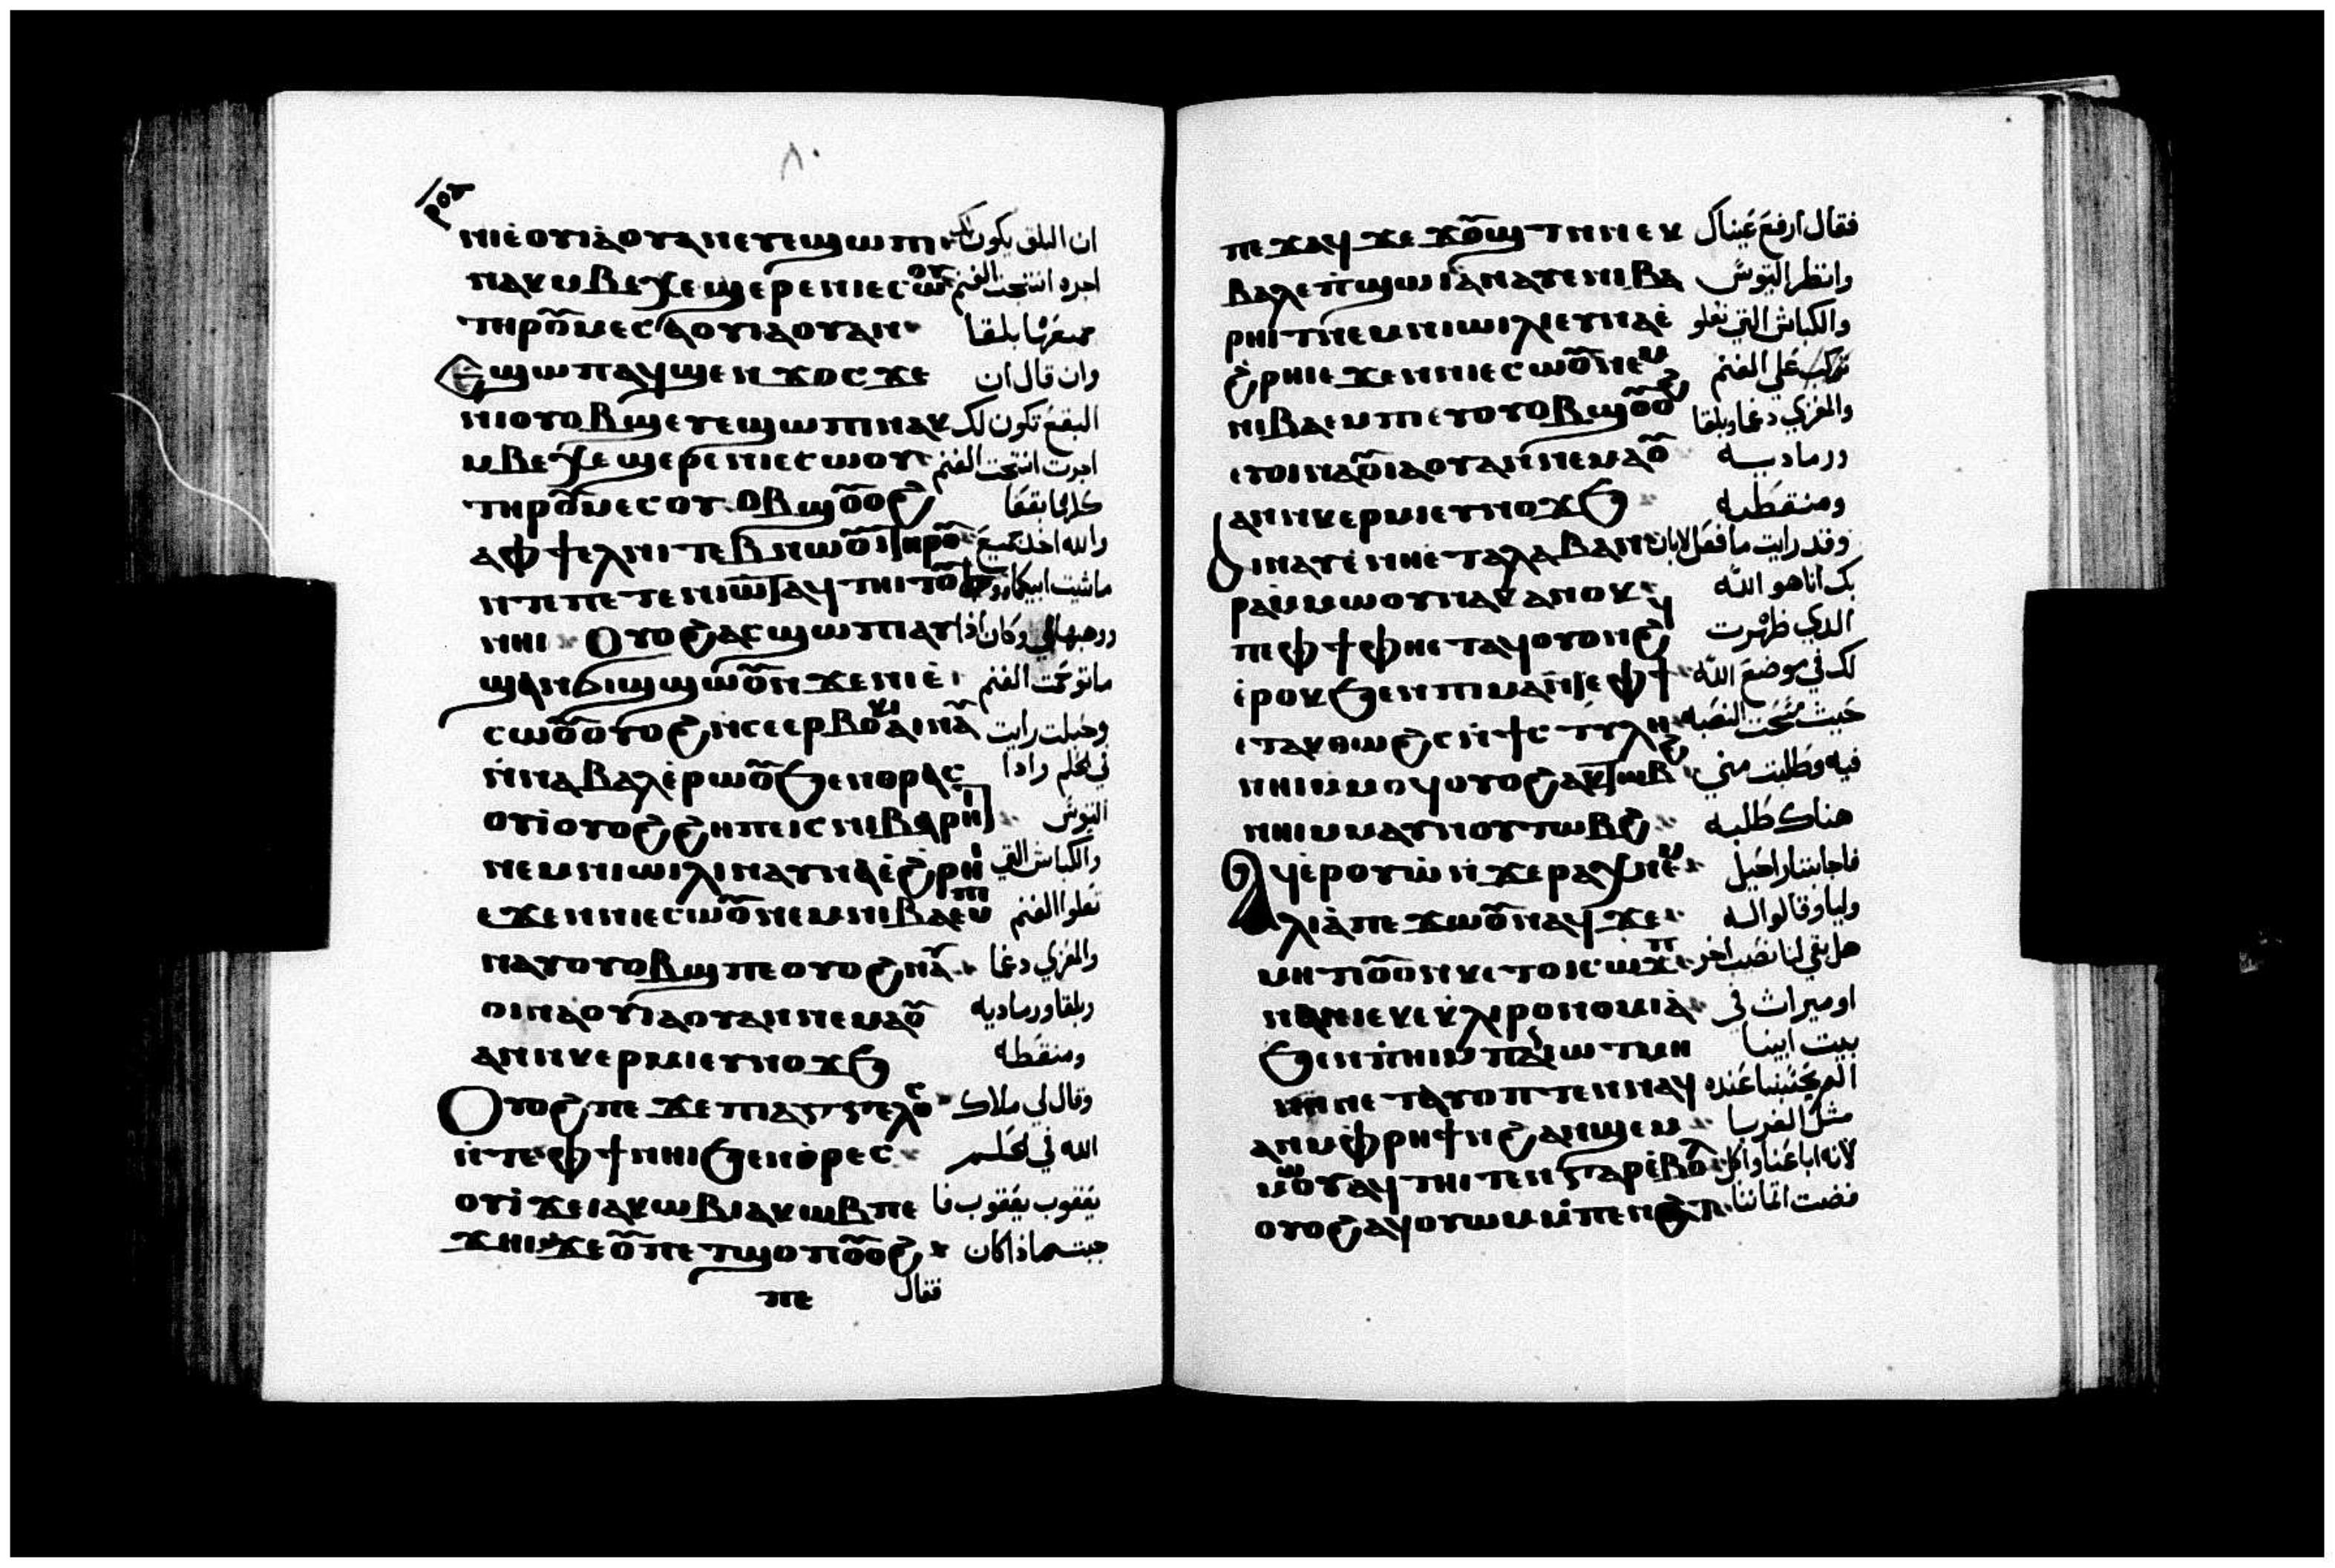 ٨٠
ⲣⲟⲇ
ⲛⲓⲉ̀ⲟⲩⲓⲁ̀ⲟⲩⲁⲛⲉⲩⲉϣⲱⲡⲓ ان البلق يكون لك
ⲛⲁⲕⲙⲃⲉⲭⲉϣⲉⲣⲉⲛⲓⲉⲥⲱⲟⲩ اجره انتجت الغنم
ⲧⲏⲣⲟ̅ⲙⲉⲥⲁⲟⲩⲓⲁⲟⲩⲁⲛ جميعها بلقا
Ⲉϣⲱⲡⲁϥϣⲉⲛϫⲟⲥϫⲉ وان قال ان
ⲛⲓⲟⲩⲟⲃϣⲉⲩⲉϣⲱⲡⲓⲛⲁⲕ البقع تكون لك
ⲙⲃⲉⲭⲉϣⲉⲣⲉⲛⲓⲉⲥⲱⲟⲩ اجرت انتجت الغنم
ⲧⲏⲣⲟ̅ⲙⲉⲥⲟⲩⲟⲃϣⲟ̅ⲟϩ كلها بقعا
ⲁⲫϯⲉⲗⲛⲓⲧⲉⲃⲛⲱⲟ̅ⲧⲏⲣⲟ̅ والله اخذ جميع
ⲛⲧⲉⲡⲉⲧⲉⲛⲓⲱ̅ⲧⲁϥⲧⲏⲓⲧⲟ̅ ماشيت ابيكما
ⲛⲏⲓ Ⲟⲩⲟϩⲁⲥϣⲱⲡⲓⲁⲩ ووهبها لي وكان اذا
ϣⲁⲛϭⲓϣϣⲱⲟ̅ⲛϫⲉⲛⲓⲉ̀ ماتوحمت الغنم
ⲥⲱⲟ̅ⲟⲩⲟϩⲛⲥⲉⲉⲣⲃⲟⲕⲓⲁⲓⲛⲁ̅ وحبلت رايت
ⲛ̀ⲛⲁⲃⲁⲗⲉ̀ⲣⲱⲟ̅ϧⲉⲛⲑⲣⲁⲥ في الحلم واذا
ⲟⲩⲓ̀ⲟⲩⲟϩϩⲏⲡⲉⲓⲥⲛⲓⲃⲁⲣⲏⲓⲧ التيوس
ⲛⲉⲙⲛⲓⲱⲓⲗⲓⲛⲁⲩⲛⲁⲉ̀ϩⲣⲏⲓ والكباش التي
ⲉϫⲉⲛⲛⲓⲉⲥⲱⲟ̅ⲛⲉⲙⲛⲓⲃⲁⲉⲙⲡⲓ تعلوا الغنم
ⲛⲁⲩⲟⲩⲟⲃϣⲡⲉⲟⲩⲟϩⲛⲁ̅ والمعزي دغما
ⲟⲓⲛⲁ̀ⲟⲩⲓⲁⲟⲩⲁⲛⲛⲉⲙⲁⲟ̅ وبلقا ورماديه
ⲁⲛⲛⲕⲉⲣⲙⲓⲉⲩⲛⲟϫϧ ومنقطه
Ⲟⲩⲟϩⲡⲉϫⲉⲡⲓⲁⲅⲅⲉⲗⲟⲥ وقال لي ملاك
ⲛ̀ⲧⲉⲫϯⲛⲏⲓϧⲉⲛⲑ̀ⲣⲉⲥ الله في الحلم
ⲟⲩⲓ̀ϫⲉⲓⲁⲕⲱⲃⲓⲁⲕⲱⲃⲡⲉ يعقوب يعقوب فا
ϫⲏⲓϫⲉⲟ̅ⲡⲉⲧϣⲟⲡⲟ̅ⲟϩ جبته ماذا كان
ⲡⲉ فقال
ⲡⲉϫⲁϥϫⲉϫⲟ̅ϣⲧⲛⲛⲉⲕ فقال ارفع عيناك
ⲃⲁⲗⲉⲡ̀ϣⲱⲓⲁ̀ⲛⲁⲩⲉⲛⲓⲃⲁ وانظر التيوس
ⲣⲏⲓⲧⲛⲉⲙⲛⲓⲱⲓⲗⲓⲉⲩⲛⲁⲉ̀ والكباش التي تعلو
ϩⲣⲏⲓⲉϫⲉⲛⲛⲓⲉⲥⲱⲟ̅ⲛⲉⲙ تركب علي الغنم
ⲛⲓⲃⲁⲉⲙⲡⲉⲩⲟⲩⲟⲃϣⲟ̅ⲟϩ والمعزي دغما وبلقا
ⲉⲧⲟⲓⲛⲁⲟ̅ⲓⲁⲟⲩⲁⲛⲛⲉⲙⲁⲟ̅ ورماديه
ⲁⲛⲛⲕⲉⲣⲙⲓⲉⲩⲛⲟϫϧ ومنقطه
ⲁⲓⲛⲁⲩⲉ̀ⲛⲏⲉ̀ⲧⲁⲗⲁⲃⲁⲛ وقد رايت ما فعل لابان
ⲣⲁⲓ̀ⲙⲙⲱⲟⲩⲛⲁⲕⲁⲛⲟⲕ بك انا هو الله
ⲡⲉⲫϯⲫⲏⲉⲧⲁϥⲟⲩⲟⲛϩϥ الذي ظهرت
ⲉ̀ⲣⲟⲕϧⲉⲛⲡⲓⲙⲁⲛⲧⲉⲫϯ لك في موضع الله
ⲉⲧⲁⲕⲑⲱϩⲥⲛ̀ϯⲥⲧⲩⲗⲏ حيث مسحت النصبه
ⲛⲏⲓⲙⲙⲟϥⲟⲩⲟϩⲁⲕⲧⲱⲃϩ فيه وطلبت مني
ⲛⲏⲓⲙⲙⲁⲩⲛⲟⲩⲧⲱⲃϩ هناك طلبه
Ⲁϥⲉ̀ⲣⲟⲩⲱ̀ⲛ̀ϫⲉⲣⲁⲭⲏⲗⲛⲉⲙ فاجابتا راحيل
ⲗⲓⲁ̀ⲡⲉϫⲱⲟ̅ⲛⲁϥϫⲉ وليا وقالوا له
ⲙⲏⲡⲟ̅ⲟⲛⲕⲉⲧⲟⲓⲥⲱϫⲡ هل بقي لنا نصيب اخر
ⲛⲁⲛⲓⲉⲕⲉⲕ̀ⲗⲓⲣⲟⲛⲟⲙⲓⲁ̀ او ميراث في
ϧⲉⲛⲡ̀ⲏⲓⲙ̀ⲡⲉⲛⲓⲱⲧⲙⲏ بيت ابينا
ⲙⲏⲡⲉⲧⲁⲩⲟⲡⲧⲉⲛⲛⲁϥ الم يحتسبنا عنده
ⲁⲛⲙ̀ⲫⲣⲏϯⲛϩⲁⲛϣⲉⲙ مثل الغربا
ⲙⲱⲟⲩⲁϥⲧⲏⲓⲧⲉⲛⲅⲁⲣⲉ̀ⲃⲟ̅ لانه اباعنا واكل
ⲟⲩⲟϩⲁϥⲟⲩⲱⲙⲙ̀ⲡⲉⲛϩⲁⲧ فضت اثماننا